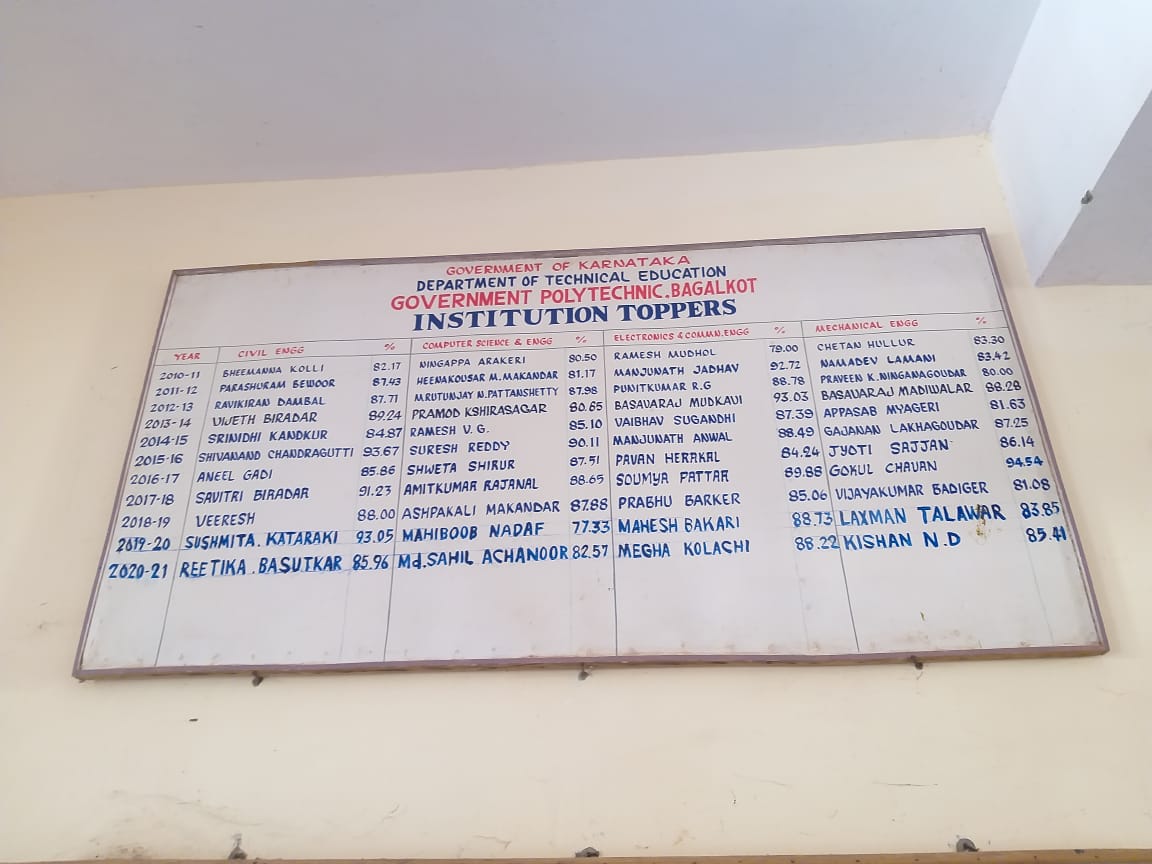 GOVERNMENT OF KARNATAKA
DEPARTMENT OF TECHNICAL EDUCATION
GOVERNMENT POLYTECHNIC.BAGALKOT
INSTITUTION TOPPERS
YEAR CIVIL ENGG % COMPUTER SCIENCE & ENGG % ELECTRONICS & COMMN.ENGG % MECHANICAL ENGG %
2010-11 BHEEMANNA KOLLI 82.17 NINGAPPA ARAKERI 80.50 RAMESH MUDHOL 79.00 CHETAN HULLUR 83.30
2011-12 PARASHURAM BEWOOR 87.43 HEENAKOUSAR M.MAKANDAR 81.17 MANJUNATH JADHAV 92.72 NAMADEV LAMANI 83.42
2012-13 RAVIKIRAN DAMBAL 87.71 MRUTUNJAY N.PATTANSHETTY 87.98 PUNITKUMAR R.G 88.78 PRAVEEN K.NINGANAGOUDAR 80.00
2013-14 VIJETH BIRADAR 89.24 PRAMOD KSHIRASAGAR 80.65 BASAVARAJ MUDKAVI 93.03 BASAVARAJ MADIWALAR 88.28
2014-15 SRINIDHI KANDKUR 84.87 RAMESH V.G. 85.10 VAIBHAV SUGANDHI 87.39 APPASAB MYAGERI 81.63
2015-16 SHIVANAND CHANDRAGUTTI 93.67 SURESH REDDY 90.11 MANJUNATH ANWAL 88.49 GAJANAN LAKHAGOUDAR 87.25
2016-17 ANEEL GADI 85.86 SHWETA SHIRUR 87.51 PAVAN HERAKAL 84.24 JYOTI SAJJAN 86.14
2017-18 SAVITRI BIRADAR 91.23 AMITKUMAR RAJANAL 88.65 SOUMYA PATTAR 89.88 GOKUL CHAVAN 94.54
2018-19 VEERESH 88.00 ASHPAKALI MAKANDAR 87.88 PRABHU BARKER 85.06 VIJAYAKUMAR BADIGER 81.08
2019-20 SUSHMITA.KATARAKI 93.05 MAHIBOOB NADAF 77.33 MAHESH BAKARI 88.73 LAXMAN TALAWAR 83.85
2020-21 REETIKA.BASUTKAR 85.96 Md.SAHIL ACHANOOR 82.57 MEGHA KOLACHI 88.22 KISHAN N.D 85.41